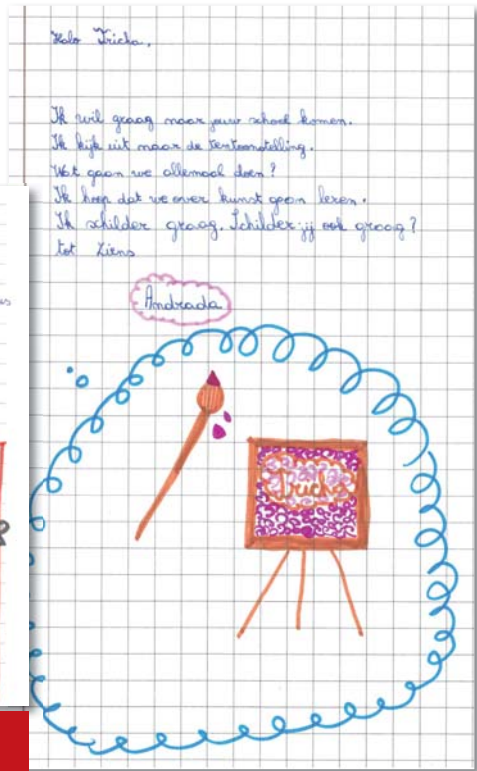 Halo Tricha,
Ik wil graag naar jouw school komen.
Ik kijk uit naar de tentoonstelling.
Wat gaan we allemaal doen?
Ik hoop dat we over kunst gaan leren.
Ik schilder graag. Schilder jij ook graag?
tot Ziens
Andrada
Tricha